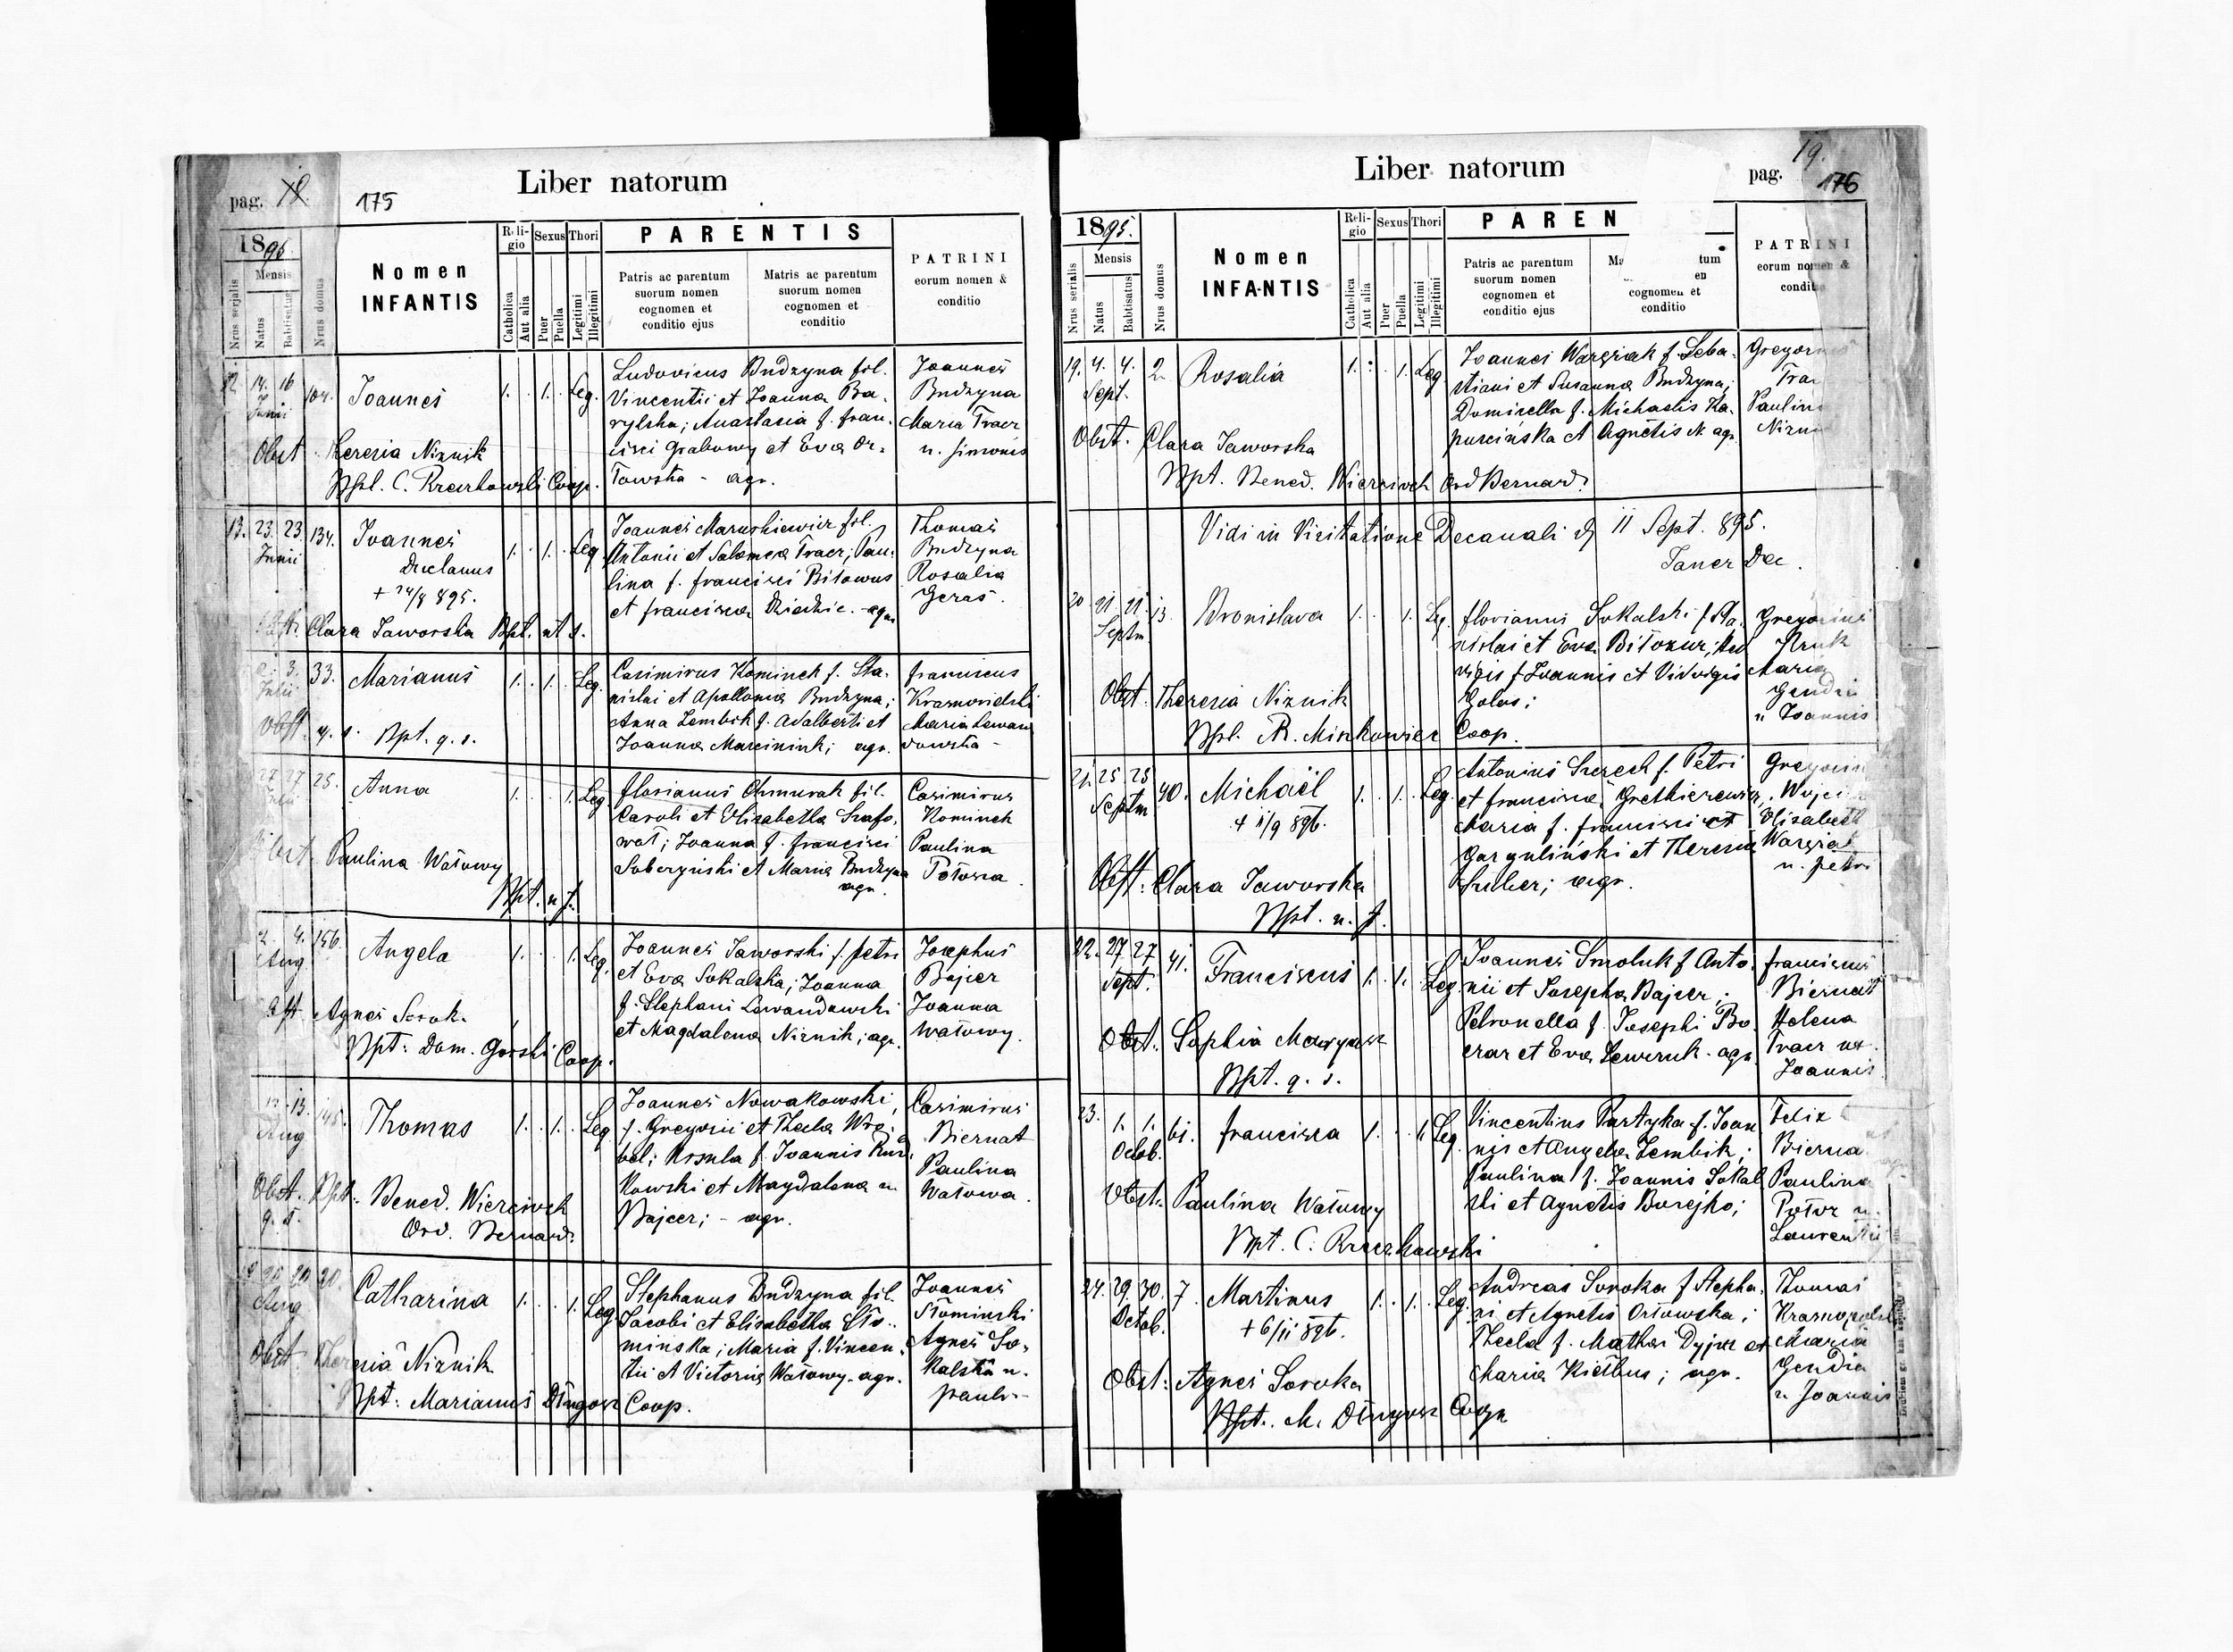 Liber natorum
pag. 18. 175
1895.
Nrus serialis
Mensis
Natus
Babtisatus
Nrus domus
Nomen
INFANTIS
Reli-
gio
Catholica
Aut alia
Sexus
Puer
Puella
Thori
Legitimi
Illegitimi
PARENTIS
Patris ac parentum
suorum nomen
cognomen et
conditio ejus
Matris ac parentum
suorum nomen
cognomen et
conditio
PATRINI
eorum nomen &
conditio
12. 14. 16 Junii 104. Joannes 1. 1. Leg.
Ludovicus Budzyna fil.
Vincentii et Joanna Ba-
rylska; Anastasia f. Fran-
cisci Grabowy et Eva Or-
łowska - agr.
Joannes
Budzyna
Maria Tracz
u. Simonis
Obst. Theresia Niznik
Bpt. C. Rzeczkowski Coop.
13. 23. 23. Junii 134. Joannes 1. 1. Leg.
+ 24/8 895.
Joannes Maruszkiewicz fil.
Antonii et Salomea Tracz; Pau-
lina f. Francisci Bitowus
et Francisca Dziedzic. - agr.
Thomas
Budzyna
Rosalia
Geras.
Clara Jaworska Bpt. ut s.
3. Julii 33. Marianus 1. 1. Leg.
Casimirus Kominek f. Sta-
nislai et Apollonia Budzyna;
Anna Lembik f. Adalberti et
Joanna Marciniuk; agr.
Franciscus
Maria Lewan
dowska -
Obst. q. s. Bpt. q. s.
27 27 Julii 25. Anna 1. 1. Leg
Florianus Chmurak fil.
Caroli et Elisabetha Szafo-
wał; Joanna f. Francisci
Soberzyński et Maria Budzyna
agr.
Casimirus
Kominek
Paulina
Obst. Paulina Watowy
Bpt. u. s.
2. 4. Aug 156. Angela 1. 1. Leg.
Joannes Jaworski f. Petri
et Eva Sokalska; Joanna
f. Stephani Lewandowski
et Magdalena Niznik; agr.
Josephus
Bajcer
Joanna
Watowy.
Obst. Agnes Sorok.
Bpt: Dom. Gorski Coop.
12 13. Aug 145. Thomas 1. 1. Leg
Joannes Nowakowski,
f. Gregorii et Thecla Wró-
bel; Ursula f. Joannis Kur-
kowski et Magdalena
Bajcer; - agr.
Casimirus
Biernat
Paulina
Watowa.
Obst. q. s. Bpt: Bened. Wiercioch
Ord. Bernard.
20 20 Aug Catharina 1. 1. Leg
Stephanus Budzyna fil.
Jacobi et Elisabetha Sło-
minska; Maria f. Vincen-
tii et Victoria Watowy. agr.
Joannes
Słominski
Agnes So-
kalska u.
Pauli -
Obst. Theresia Niznik
Bpt: Marianus Długosz Coop.
Liber natorum
pag. 19. 176
1895.
Nrus serialis
Mensis
Natus
Babtisatus
Nrus domus
Nomen
INFANTIS
Reli-
gio
Catholica
Aut alia
Sexus
Puer
Puella
Thori
Legitimi
Illegitimi
PAREN
Patris ac parentum
suorum nomen
cognomen et
conditio ejus
Ma tum
en
cognomen et
conditio
PATRINI
eorum nomen &
conditio
19. 4. 4. Sept. 2. Rosalia 1. 1. Leg
Joannes Wargziak f. Seba-
stiani et Susanna Budzyna;
Domicella f. Michaelis Ka-
puscińska et Agnetis N. agr.
Gregorius
Trac
Paulina
Obst. Clara Jaworska
Bpt. Bened. Wiercioch Ord Bernard.
Vidi in Visitatione Decanali d. 11 Sept. 895.
Janer Dec.
20 21. 21. Septm 13. Bronislava 1. 1. Leg.
Florianus Sokalski f. Sta-
nislai et Eva Bitozur; Hed
vigis f. Joannis et Vidvigis
Golos;
Gregorius
Kruk
Maria
Gendia
u Joannis
Obst. Theresia Niznik
Bpt. R. Minkowicz Coop.
21. 25 25 Septm 40. Michaël 1. 1. Leg.
+ 11/9 896.
Antonius Szezech f. Petri
et Francisca Gretkierewicz,
Maria f. Francisci et
Garguliński et Theresia
Huber; agr.
Elisabeth
u. Petri
Obst: Clara Jaworska
Bpt. u. s.
22. 27 27 Sept. 41. Franciscus 1. 1. Leg.
Joannes Smoluk f. Anto-
nii et Josepha Bajcer;
Petronella f. Josephi Bo-
czar et Eva Lewczuk. agr.
Franciscus
Biernat
Helena
Tracz ux.
Joannis.
Obst. Sophia Mazyarz
Bpt. q. s.
23. 1. 1. Octob. 61. Francisca 1. 1. Leg.
Vincentius Partyka f. Joan
nis et Angela Lembik;
Paulina f. Joannis Sokal
ski et Agnetis Borejko;
Felix
Bierna
Paulina
Laurentii
Obst. Paulina Watowy
Bpt. C. Rzeczkowski
24. 29. 30. Octob. 7. Martinus 1. 1. Leg.
+ 6/11 896.
Andreas Soroka f Stepha-
ni et Agnetis Orłowska;
Thecla f. Mathei Dyjur et
Maria Kiełbus; agr.
Thomas
Krasnopolski
Maria
Gendia
u Joannis
Obst: Agnes Soroka
Bpt. M. Długosz Coop